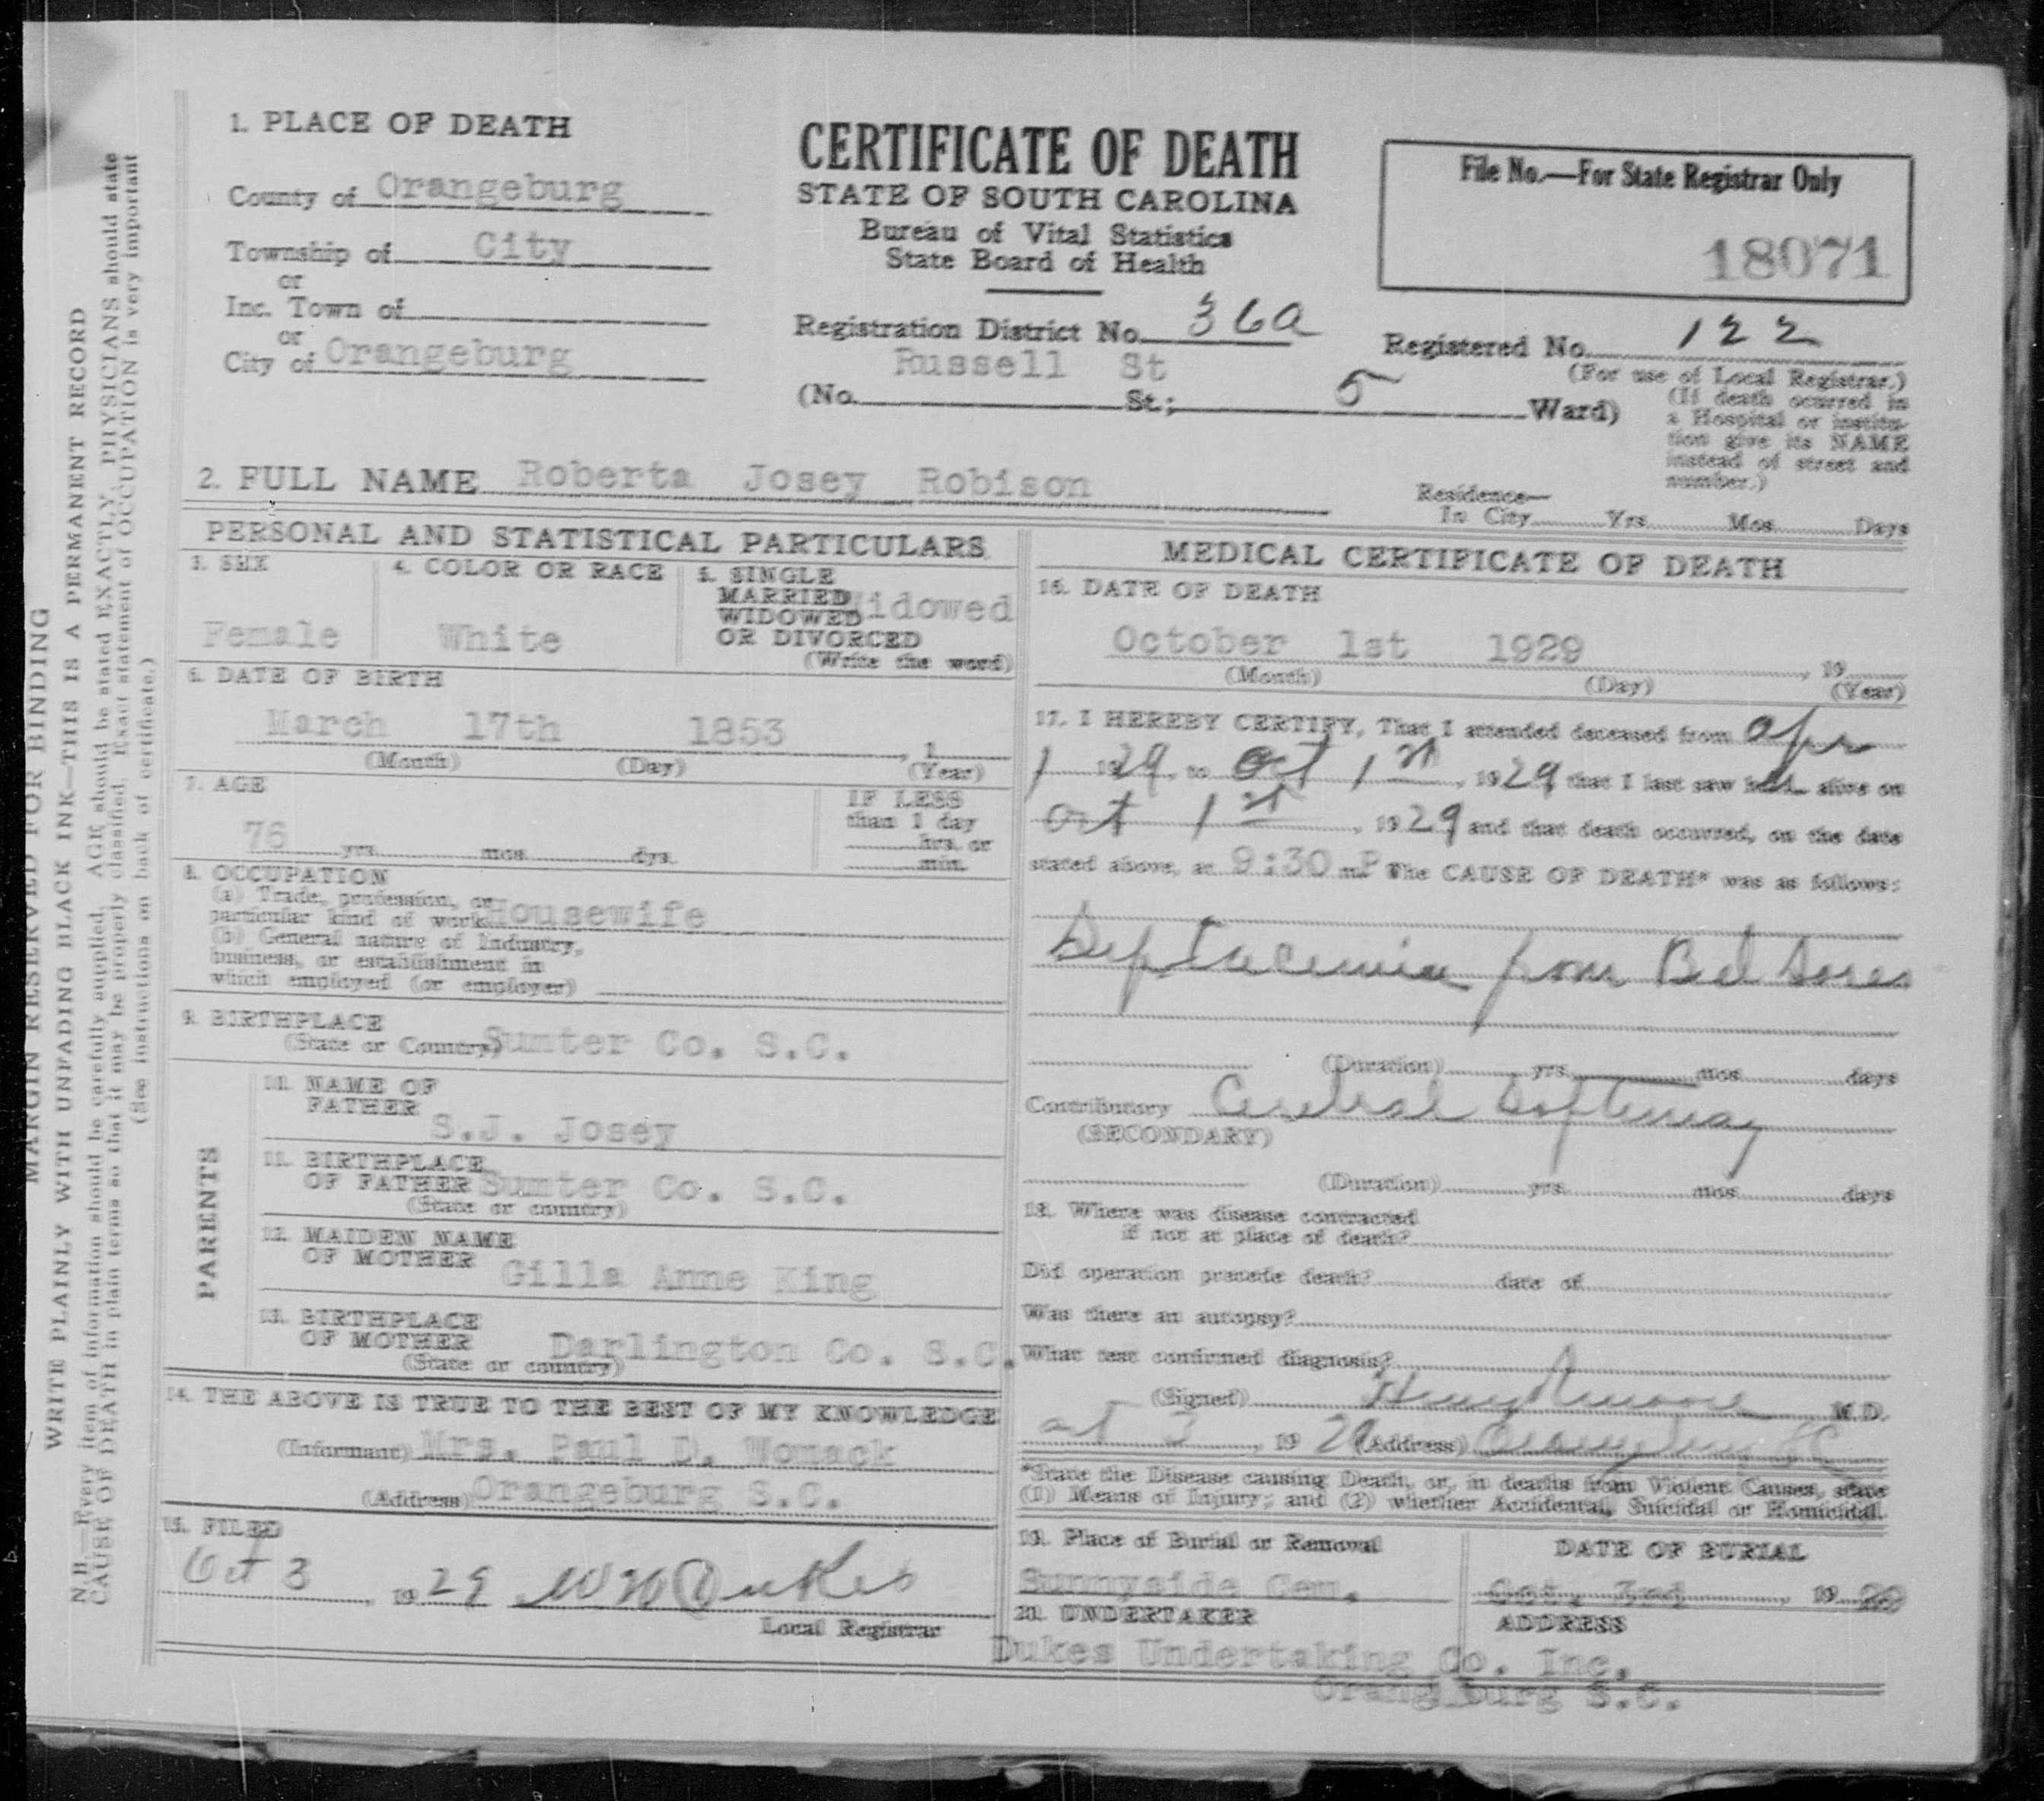 MARGIN RESERVED FOR BINDING
WRITE PLAINLY WITH UNFADING BLACK INK—THIS IS A PERMANENT RECORD
N.B.—Every item of information should be carefully supplied. AGE should be stated EXACTLY. PHYSICIANS should state
CAUSE OF DEATH in plain terms so that it may be properly classified. Exact statement of OCCUPATION is very important
(See instructions on back of certificate.)
1. PLACE OF DEATH
County of Orangeburg
Township of City
or
Inc. Town of
or
City of Orangeburg
CERTIFICATE OF DEATH
STATE OF SOUTH CAROLINA
Bureau of Vital Statistics
State Board of Health
Registration District No. 36a
Russell St
(No. St.; 5 Ward)
File No.—For State Registrar Only
18071
Registered No. 122
(For use of Local Registrar.)
(If death ocurred in
a Hospital or institu-
tion give its NAME
instead of street and
number.)
2. FULL NAME Roberta Josey Robison
Residence—
In City Yrs. Mos. Days
PERSONAL AND STATISTICAL PARTICULARS
3. SEX
Female
4. COLOR OR RACE
White
5. SINGLE
MARRIED
WIDOWED
OR DIVORCED
Widowed
(Write the word)
6. DATE OF BIRTH
March 17th 1853 , 1
(Month) (Day) (Year)
7. AGE
76 yrs. mos. dys.
IF LESS
than 1 day
hrs. or
min.
8. OCCUPATION
(a) Trade, profession, or
particular kind of work Housewife
(b) General nature of Industry,
business, or establishment in
which employed (or employer)
9. BIRTHPLACE
(State or Country) Sumter Co. S.C.
PARENTS
10. NAME OF
FATHER
S.J. Josey
11. BIRTHPLACE
OF FATHER Sumter Co. S.C.
(State or country)
12. MAIDEN NAME
OF MOTHER Gilla Anne King
13. BIRTHPLACE
OF MOTHER Darlington Co. S.C.
(State or country)
14. THE ABOVE IS TRUE TO THE BEST OF MY KNOWLEDGE
(Informant) Mrs. Paul D. Womack
(Address) Orangeburg S.C.
15. FILED
Oct 3 , 1929 Dukes
Local Registrar
MEDICAL CERTIFICATE OF DEATH
16. DATE OF DEATH
October 1st 1929 , 19
(Month) (Day) (Year)
17. I HEREBY CERTIFY, That I attended deceased from Apr
1 1929, to Oct 1st, 1929 that I last saw her alive on
Oct 1st , 1929 and that death occurred, on the date
stated above, at 9:30 m.P The CAUSE OF DEATH* was as follows:
Septacemia from Bed Sores
(Duration) yrs. mos. days
Contributory Cerebral Softening
(SECONDARY)
(Duration) yrs. mos. days
18. Where was disease contracted
if not at place of death?
Did operation precede death? date of
Was there an autopsy?
What test confirmed diagnosis?
(Signed) M.D.
Oct 3 , 1929 (Address) Orangeburg SC
*State the Disease causing Death, or, in deaths from Violent Causes, state
(1) Means of Injury; and (2) whether Accidental, Suicidal or Homicidal.
19. Place of Burial or Removal
Sunnyside Cem.
DATE OF BURIAL
Oct. 3rd , 1929
20. UNDERTAKER
ADDRESS
Dukes Undertaking Co. Inc.
Orangeburg S.C.